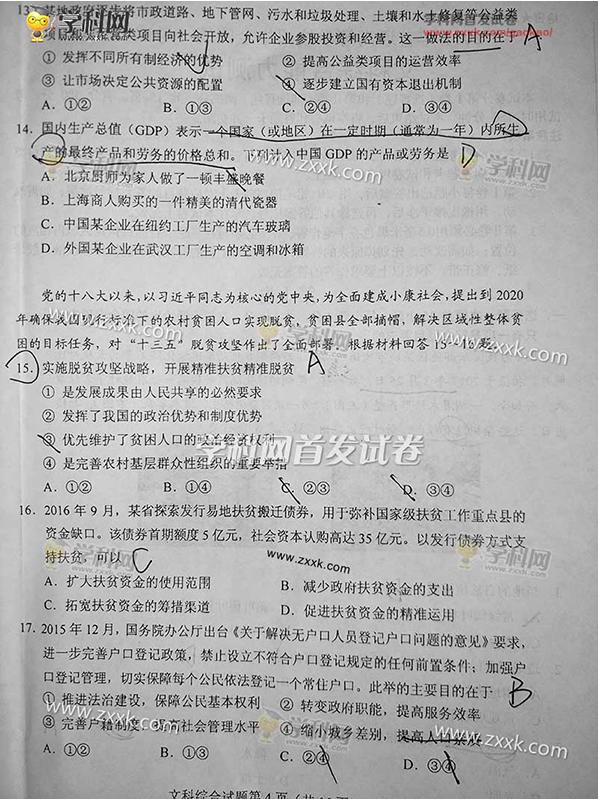 13. 某地政府逐步将市政道路、地下管网、污水和垃圾处理、土壤和水生修复等公益类
项目和 类项目向社会开放，允许企业参股投资和经营。这一做法的目的在于 A
① 发挥不同所有制经济的优势 ② 提高公益类项目的运营效率
③ 让市场决定公共资源的配置 ④ 逐步建立国有资本退出机制
A．①② B．①③ C．②④ D．③④
14. 国内生产总值（GDP）表示一个国家（或地区）在一定时期（通常为一年）内所生
产的最终产品和劳务的价格总和。下列计入中国 GDP 的产品或劳务是 D
A．北京厨师为家人做了一顿丰盛晚餐
B．上海商人购买的一件精美的清代瓷器
C．中国某企业在纽约工厂生产的汽车玻璃
D．外国某企业在武汉工厂生产的空调和冰箱
党的十八大以来，以习近平同志为核心的党中央，为全面建成小康社会，提出到 2020
年确保我国现行标准下的农村贫困人口实现脱贫，贫困县全部摘帽，解决区域性整体贫
困的目标任务，对“十三五”脱贫攻坚作出了全面部署。根据材料回答 15－16 题。
15. 实施脱贫攻坚战略，开展精准扶贫精准脱贫 A
① 是发展成果由人民共享的必然要求
② 发挥了我国的政治优势和制度优势
③ 优先维护了贫困人口的政治经济权利
④ 是完善农村基层群众性组织的重要举措
A．①② B．①④ C．②③ D．③④
16. 2016 年 9 月，某省探索发行易地扶贫搬迁债券，用于弥补国家级扶贫工作重点县的
资金缺口。该债券首期额度 5 亿元，社会资本认购高达 35 亿元。以发行债券方式支
持扶贫，可以 C
A．扩大扶贫资金的使用范围 B．减少政府扶贫资金的支出
C．拓宽扶贫资金的筹措渠道 D．促进扶贫资金的精准运用
17. 2015 年 12 月，国务院办公厅出台《关于解决无户口人员登记户口问题的意见》要求，
进一步完善户口登记政策，禁止设立不符合户口登记规定的任何前置条件；加强户
口登记管理，切实保障每个公民依法登记一个常住户口。此举的主要目的在于 B
① 推进法治建设，保障公民基本权利 ② 转变政府职能，提高服务效率
③ 完善户籍制度，提高社会管理水平 ④ 缩小城乡差别，提高人口素质
A．①② B．①③ C．②④ D．③④
文科综合试题第 4 页（共
学科网首发试卷
学科网
www.zxxk.com